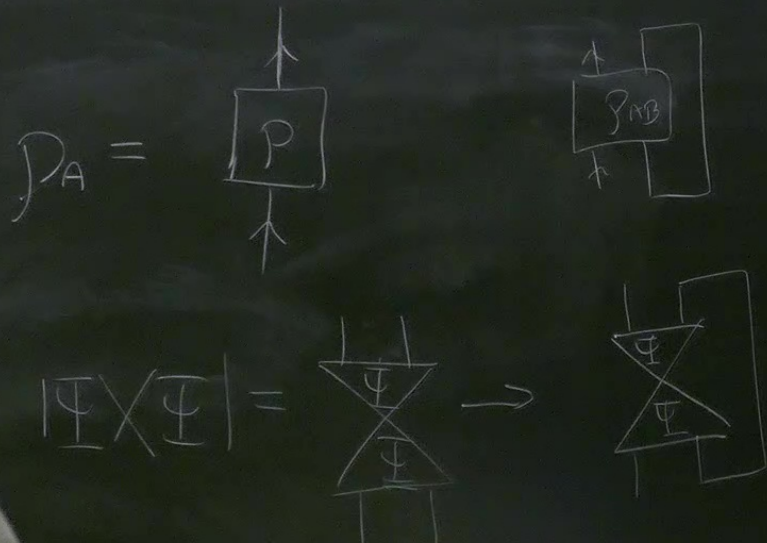 ρ_A = ρ
ρ_AB
|Ψ⟩⟨Ψ| = Ψ → Ψ
Ψ Ψ